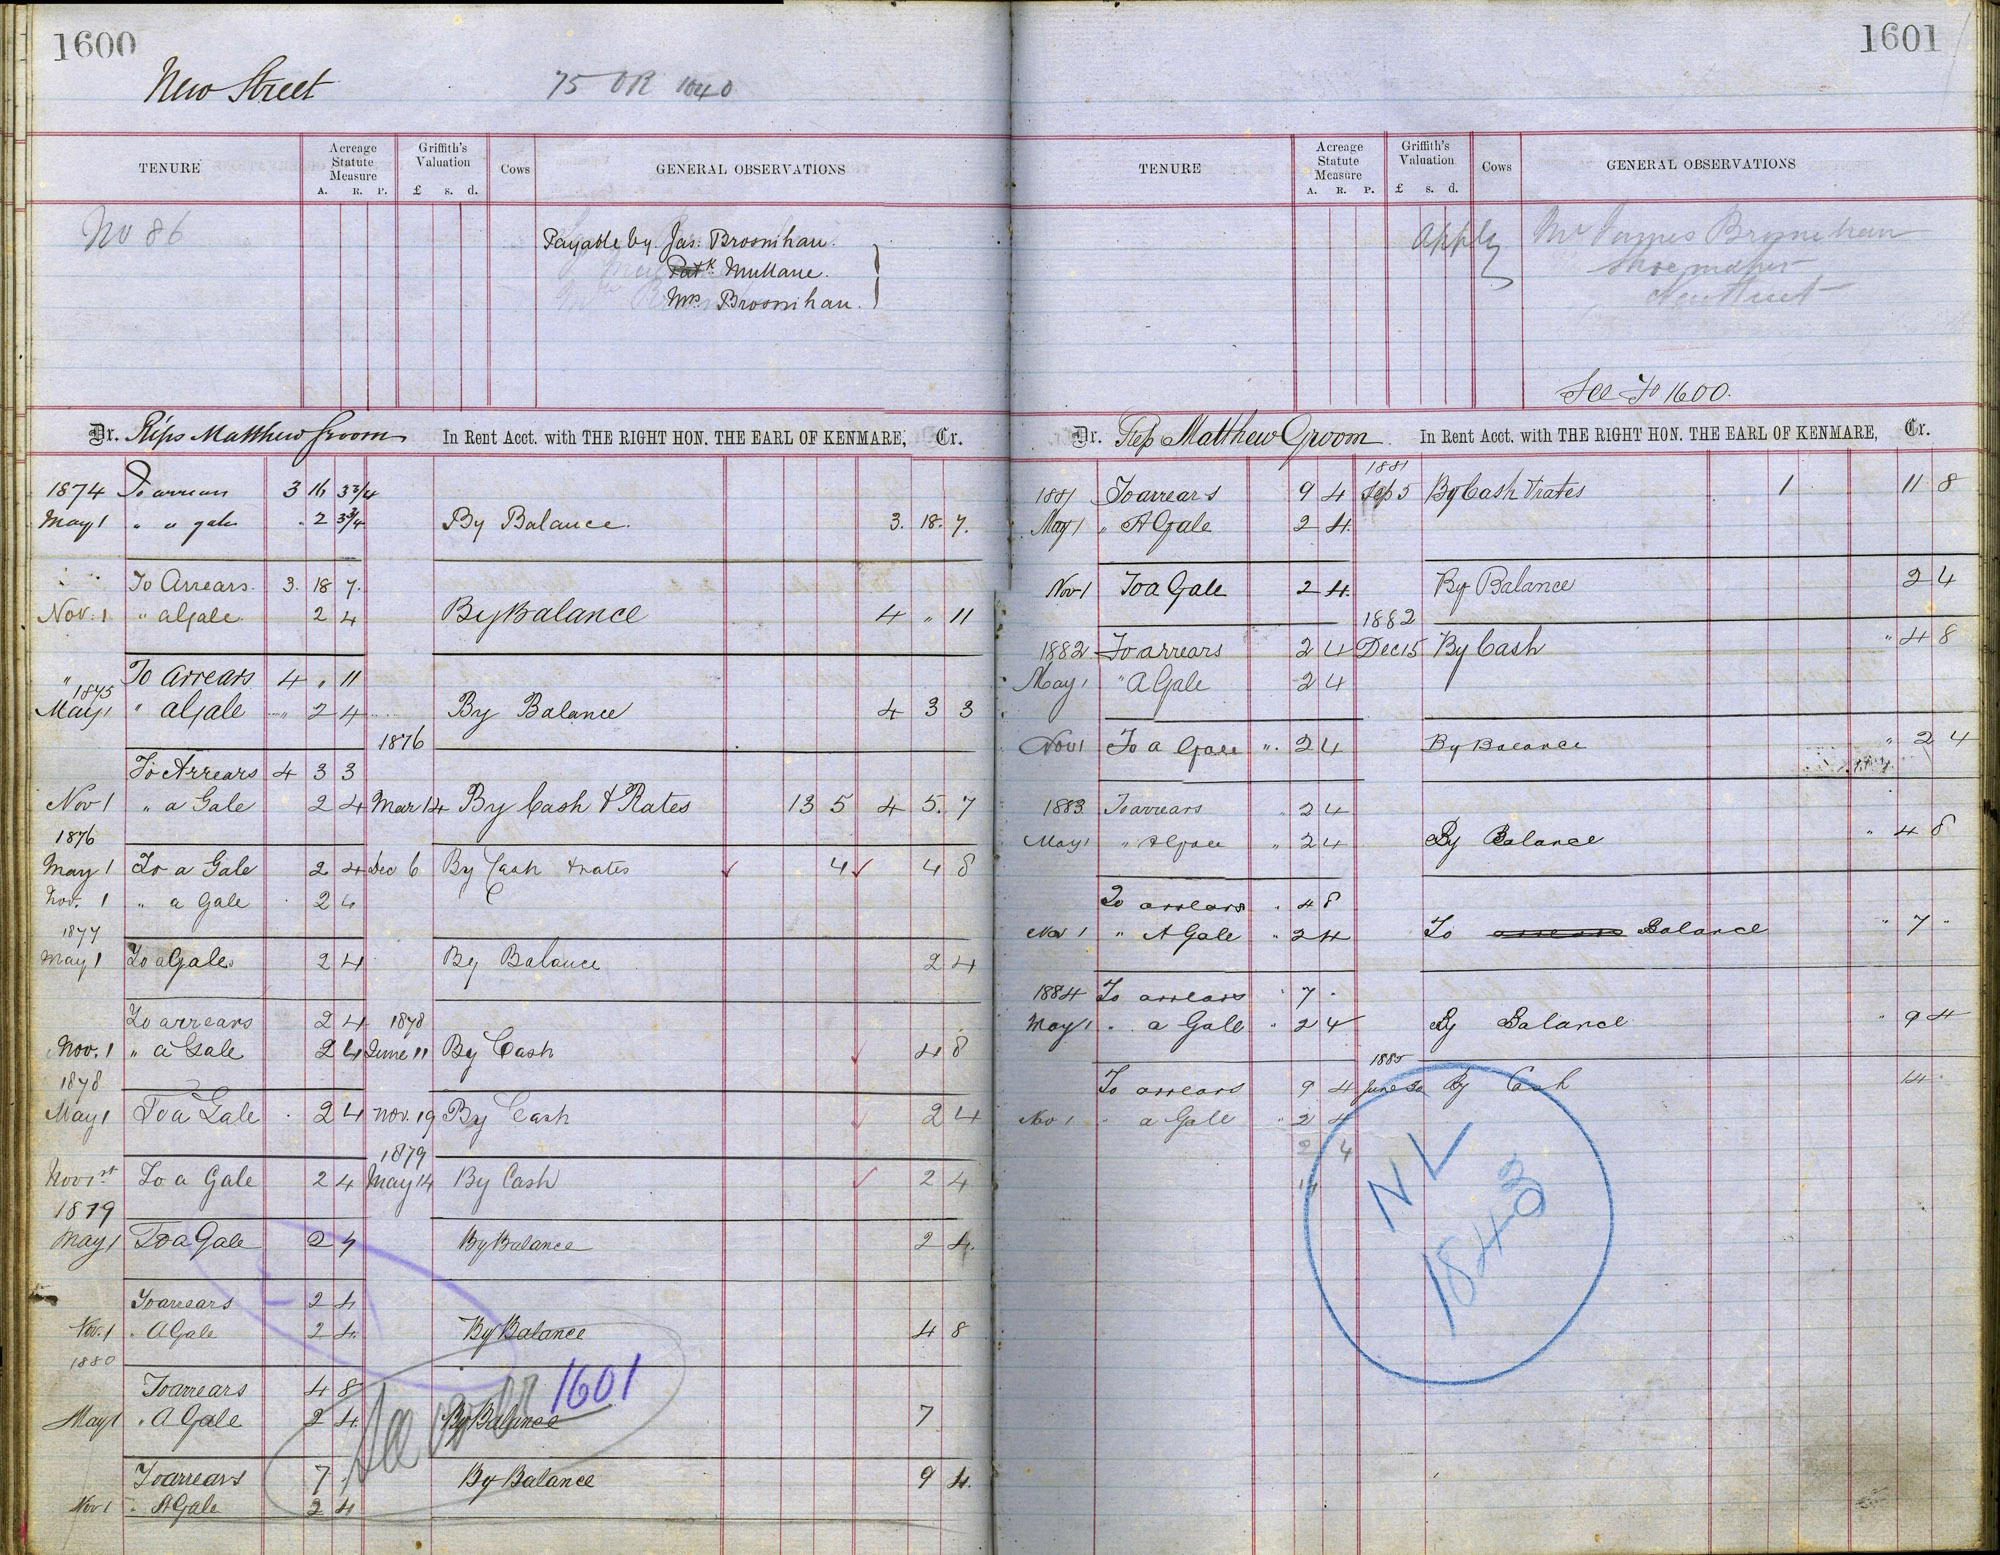 1600
New Street
75 OR 1040
TENURE
Acreage Statute Measure
A. R. P.
Griffith's Valuation
£ s. d.
Cows
GENERAL OBSERVATIONS
No 86
Payable by Jas. Brosnihan.
Patk Mullane.
Mrs Brosnihan.
Dr. Reps Matthew Groom In Rent Acct. with THE RIGHT HON. THE EARL OF KENMARE, Cr.
1874 To arrears 3 16 3 3/4
May 1 " a gale . 2 3 3/4 By Balance. 3. 18. 7.
To Arrears. 3. 18 7.
Nov. 1 " a Gale 2 4 By Balance 4 " 11
" To Arrears 4 " 11
1875
May 1 " a Gale 2 4 By Balance 4 3 3
1876
To Arrears 4 3 3
Nov 1 " a Gale 2 4 Mar 14 By Cash & Rates 13 5 4 5. 7
1876
May 1 To a Gale 2 4 Dec 6 By Cash & rates 4 4 8
Nov. 1 " a Gale 2 4
1877
May 1 To a Gale 2 4 By Balance 2 4
To arrears 2 4 1878
Nov. 1 " a Gale 2 4 June 11 By Cash 4 8
1878
May 1 To a Gale 2 4 Nov. 19 By Cash 2 4
1879
Nov 1st To a Gale 2 4 May 14 By Cash 2 4
1879
May 1 To a Gale 2 4 By Balance 2 4.
To arrears 2 4
Nov. 1 " A Gale 2 4 By Balance 4 8
1880
To arrears 4 8
See over 1601
May 1 " A Gale 2 4 By Balance 7
To arrears 7 By Balance 9 4.
Nov 1 " A Gale 2 4
1601
TENURE
Acreage Statute Measure
A. R. P.
Griffith's Valuation
£ s. d.
Cows
GENERAL OBSERVATIONS
Apply Mr James Brosnihan
Shoemaker
New Street
See Fo 1600.
Dr. Reps Matthew Groom In Rent Acct. with THE RIGHT HON. THE EARL OF KENMARE, Cr.
1881
1881 To arrears 9 4 Sep 5 By Cash & rates 1 11 8
May 1 " A Gale 2 4
Nov 1 To a Gale 2 4 By Balance 2 4
1882
1882 To arrears 2 4 Dec 15 By Cash " 4 8
May 1 " A Gale 2 4
Nov 1 To a Gale " 2 4 By Balance " 2 4
1883 To arrears " 2 4
May 1 " A Gale " 2 4 By Balance " 4 8
To arrears " 4 8
Nov 1 " A Gale " 2 4 To arrears Balance " 7 "
1884 To arrears " 7 "
May 1 " a Gale " 2 4 By Balance " 9 4
1885
To arrears 9 4 June 20 By Cash 4 "
Nov 1 " a Gale " 2 4
2 4
14
NL
1843